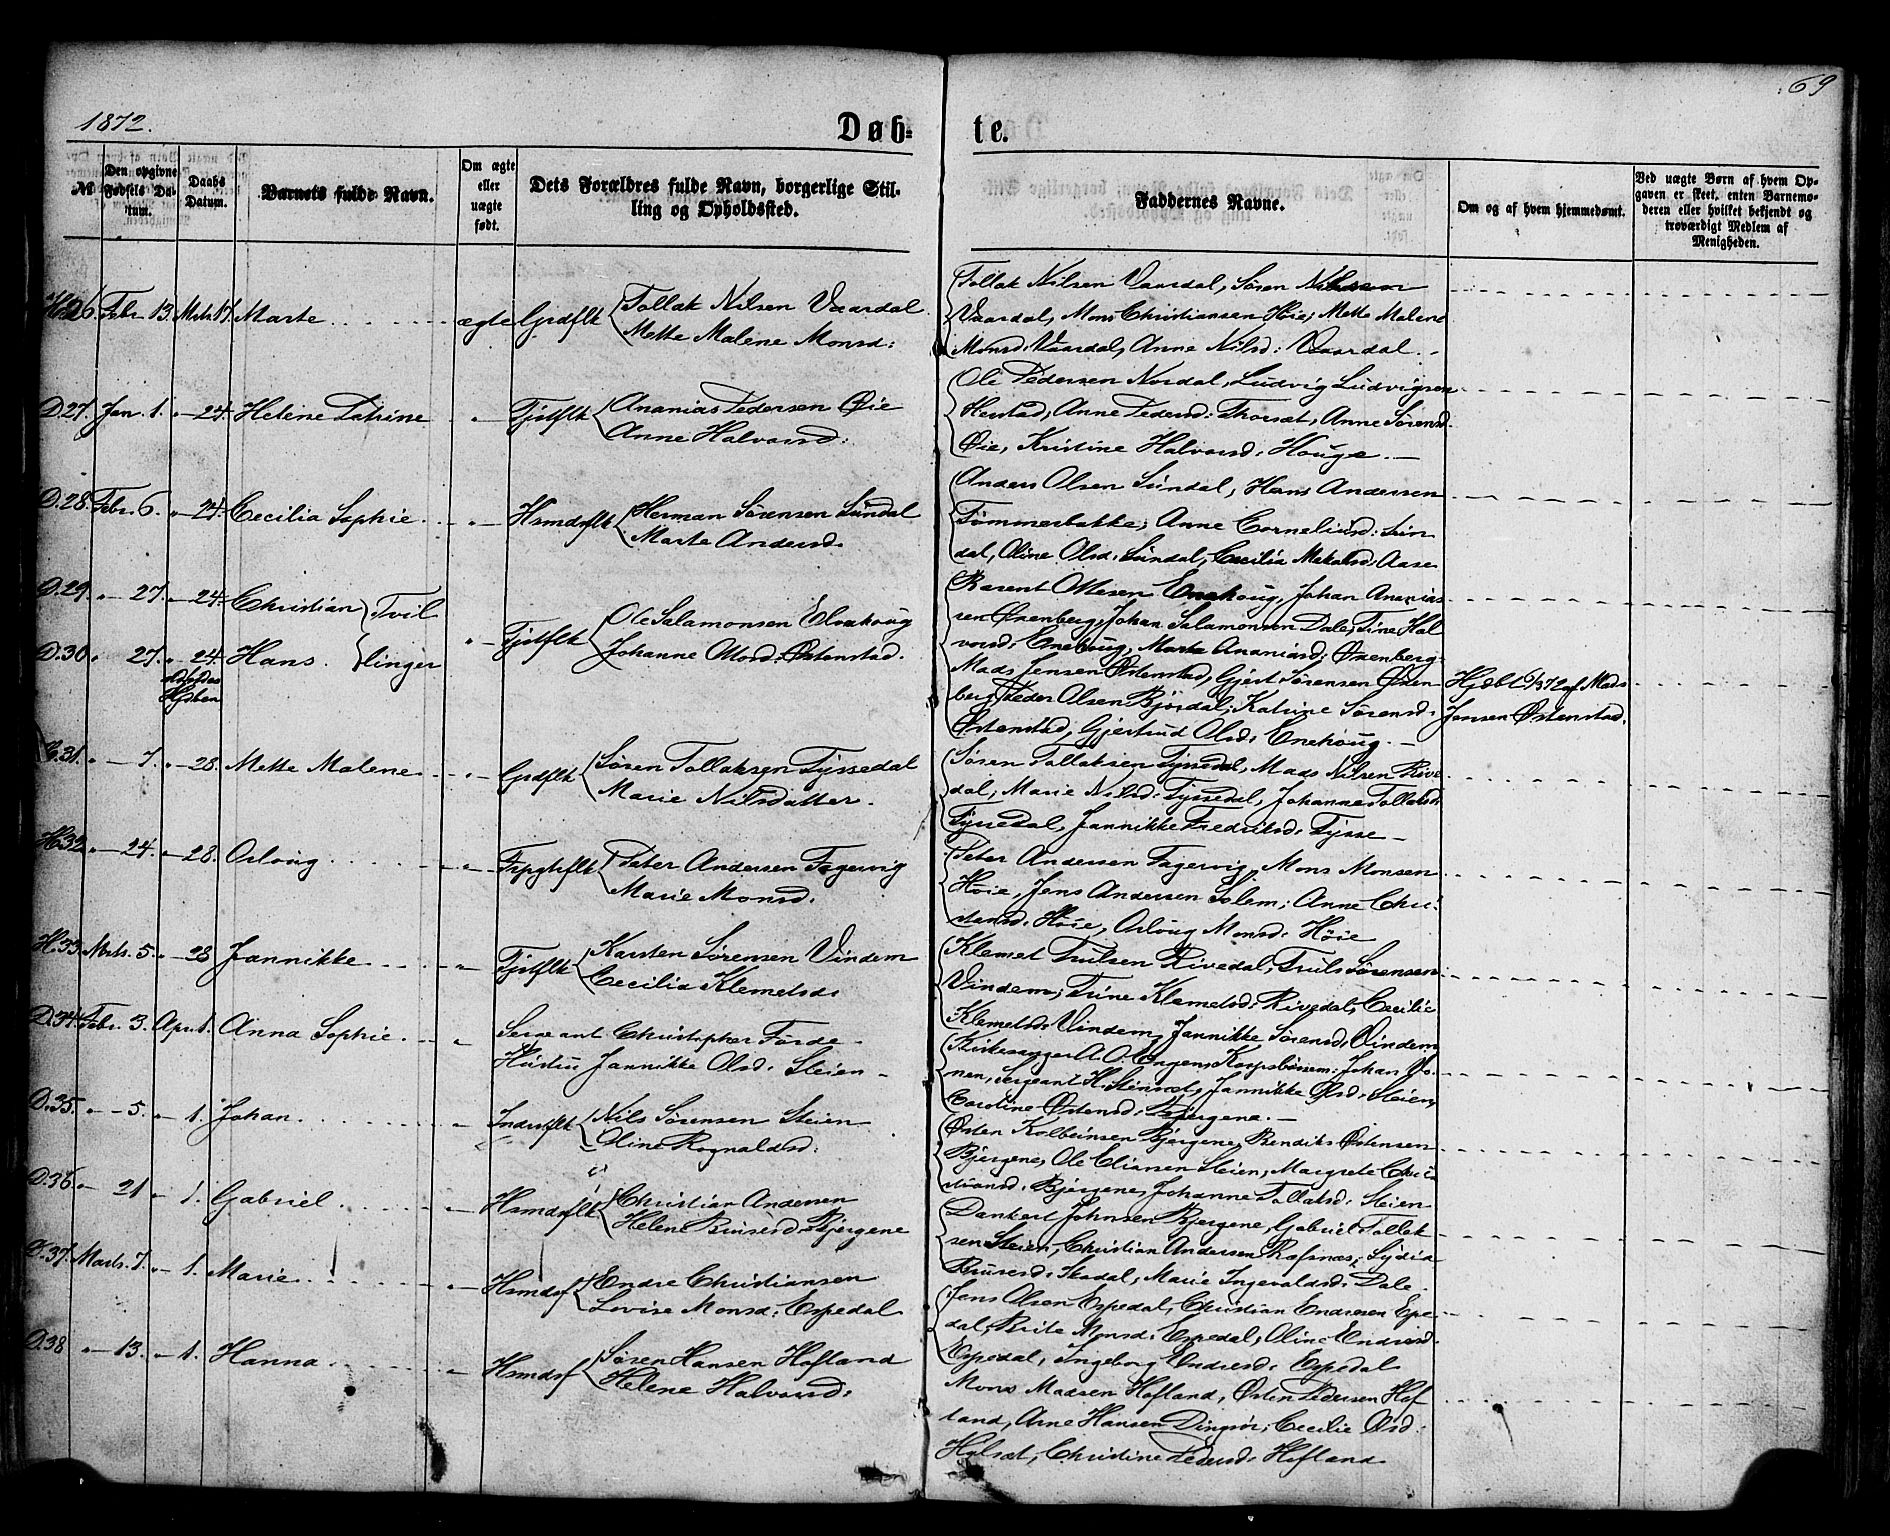 69
1872.
Døb-
te.
№
Den opgivne Fødsels Datum.
Daabs Datum.
Barnets fulde Navn.
Om ægte eller uægte født.
Dets Forældres fulde Navn, borgerlige Stilling og Opholdssted.
Faddernes Navne.
Om og af hvem hjemmedøbt.
Ved uægte Børn af hvem Opgaven er skeet, enten Barnemoderen eller hvilket bekjendt og troværdigt Medlem af Menigheden.
H.26. Febr. 13. Marts 17. Marte ægte Grdflk Tollak Nilsen Vaardal
Mette Malene Monsd:
Tollak Nilsen Vaardal, Søren Nilssen
Vaardal, Mons Christiansen Høie, Mette Malene
Monsd: Vaardal, Anne Nilsd: Vaardal.
D.27. Jan. 1. " 24. Helene Katrine " Fjstflk Ananias Pedersen Øie
Anne Halvorsd:
Ole Pedersen Nordal, Ludvig Ludvigsen
Herstad, Anne Pedersd: Thorset, Anne Sørensd.
Øie, Kristine Halvorsd: Houge.
D.28. Febr. 6. " 24. Cecilia Sophie " Hsmdsflk Herman Sørensen Sundal
Marte Andersd.
Anders Olsen Sundal, Hans Andersen
Tømmerbakke, Anne Corneliusd: Sun
dal, Oline Olsd: Sundal, Cecilia Aase
D.29. " 27. " 24. Christian Tvil
D.30. " 27. " 24. Hans. linger " Fjstflk Ole Salamonsen
Johanne Ottesd: Østenstad.
Barent Ottesen Enehoug, Johan Ananias
sen Ørenberg, Johan Salamonsen Dale, Tine Hal
vorsd: Enehoug, Marta Ananiasd: Ørenberg.
Mads Jensen Østenstad, Gjert Sørensen Øren
berg, Peder Olsen Bjørdal, Katrine Sørensd.
Østenstad, Gjertrud Olsd: Enehoug.
Jensen Østenstad.
H.31. " 7. " 28. Mette Malene " Grdflk Søren Tollaksen Tyssedal
Marie Nilsdatter.
Søren Tollaksen Tyssedal, Mads Nilsen Rive
dal, Marie Nilsd: Tyssedal, Johanne Tollaksd
Tyssedal, Jannikke Fredriksd: Tysse
H.32. " 24. " 28. Oslaug " Peter Andersen Fagervig
Marie Monsd.
Peter Andersen Fagervig, Mons Monsen
Høie, Jens Andersen Solem, Anne Chri
stensd: Høie, Oslaug Monsd: Høie
H.33. Marts. 5. " 28 Jannikke " Fjstflk Karsten Sørensen Vindem
Cecilia Klemetsd:
Klemet Trulsen Rivedal, Truls Sørensen
Vindem, Trine Klemetsd: Rivedal, Cecilie
Klemetsd: Vindem, Jannikke Sørensd: Vindem
D.34. Febr. 3. Apr. 1. Anna Sophie " Sergeant Christopher Førde
Hustru Jannikke Olsd: Steien
Kirkesanger A. O. Engen, Korpsbøssem: Johan
nen, Sergeant H. Stenvist, Jannikke Olsd: Steien,
Caroline Østensd: Bjergene.
D.35. " 5. " 1. Johan. " Inderstflk Nils Sørensen Steien
Oline Rognaldsd:
Østen Kolbeinsen Bjergene, Bendiks Østensen
Bjergene, Ole Eliansen Steien, Margrete Chri
stiansd: Bjergene, Johanne Tollaksd: Steien
D.36. " 21 " 1. Gabriel. " Hsmdsflk Christian Andersen
Helene Brusesd: Bjergene
Dankert Johnsen Bjergene, Gabriel Tollak
sen Steien, Christian Andersen Rafsnæs, Lydia
Brusesd: Skadal, Marie Ingevaldsd: Dale.
D.37. Marts. 7. " 1. Marie " Hsmdsf Endre Christiansen
Lovise Monsd: Espedal
Jens Olsen Espedal, Christian Endresen Espe
dal, Brite Monsd: Espedal, Oline Endresd.
Espedal, Ingeborg Endresd: Espedal
D.38 " 13. " 1. Hanna " Hsmdsf Søren Hansen Hofland
Helene Halvorsd:
Mons Madsen Hofland, Østen Pedersen Hof
land, Arne Hansen Dingsør, Cecilie Olsd:
Hålset, Christine Pedersd: Hofland.